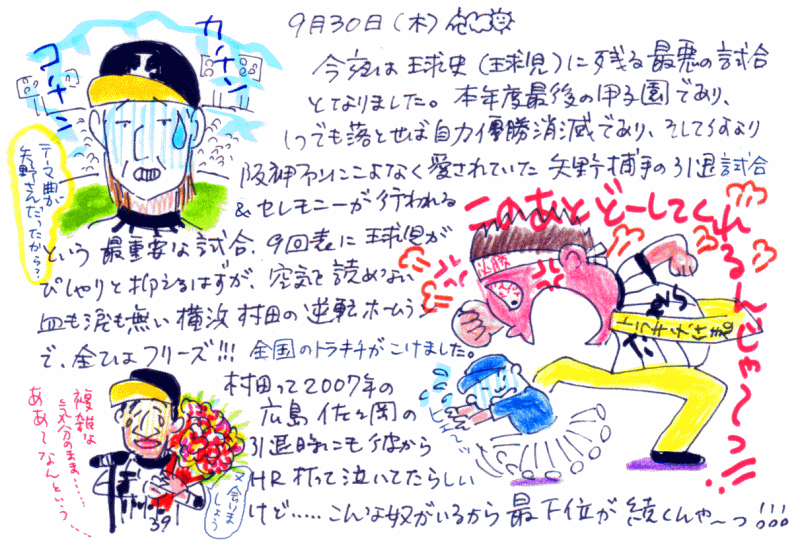 9月30日(木)
今夜は球史(球児)に残る最悪の試合
となりました。本年度最後の甲子園であり、
いつでも落とせば自力優勝消滅であり、そして何より
阪神ファンにこよなく愛されていた矢野捕手の引退試合
&セレモニーが行われる
という最重要な試合、9回表に球児が
ぴしゃりと抑えるはずが、空気を読めない
血も涙も無い横浜村田の逆転ホームラン
で、全てはフリーズ!!!全国のトラキチがこけました。
村田って2007年の
広島佐々岡の
引退時にも彼から
HR打って泣いてたらしい
けど……こんな奴がいるから最下位が続くんや〜っ!!!
カーナン
コーナン
テーマ曲が
矢野さんだったから?
このあとどーしてくれ
るんじゃ〜っ!!
必勝
トラキチ
ヒェ〜ッ
複雑な
気分のまま……
ああ〜なんという…
又、会いま
しょう
39